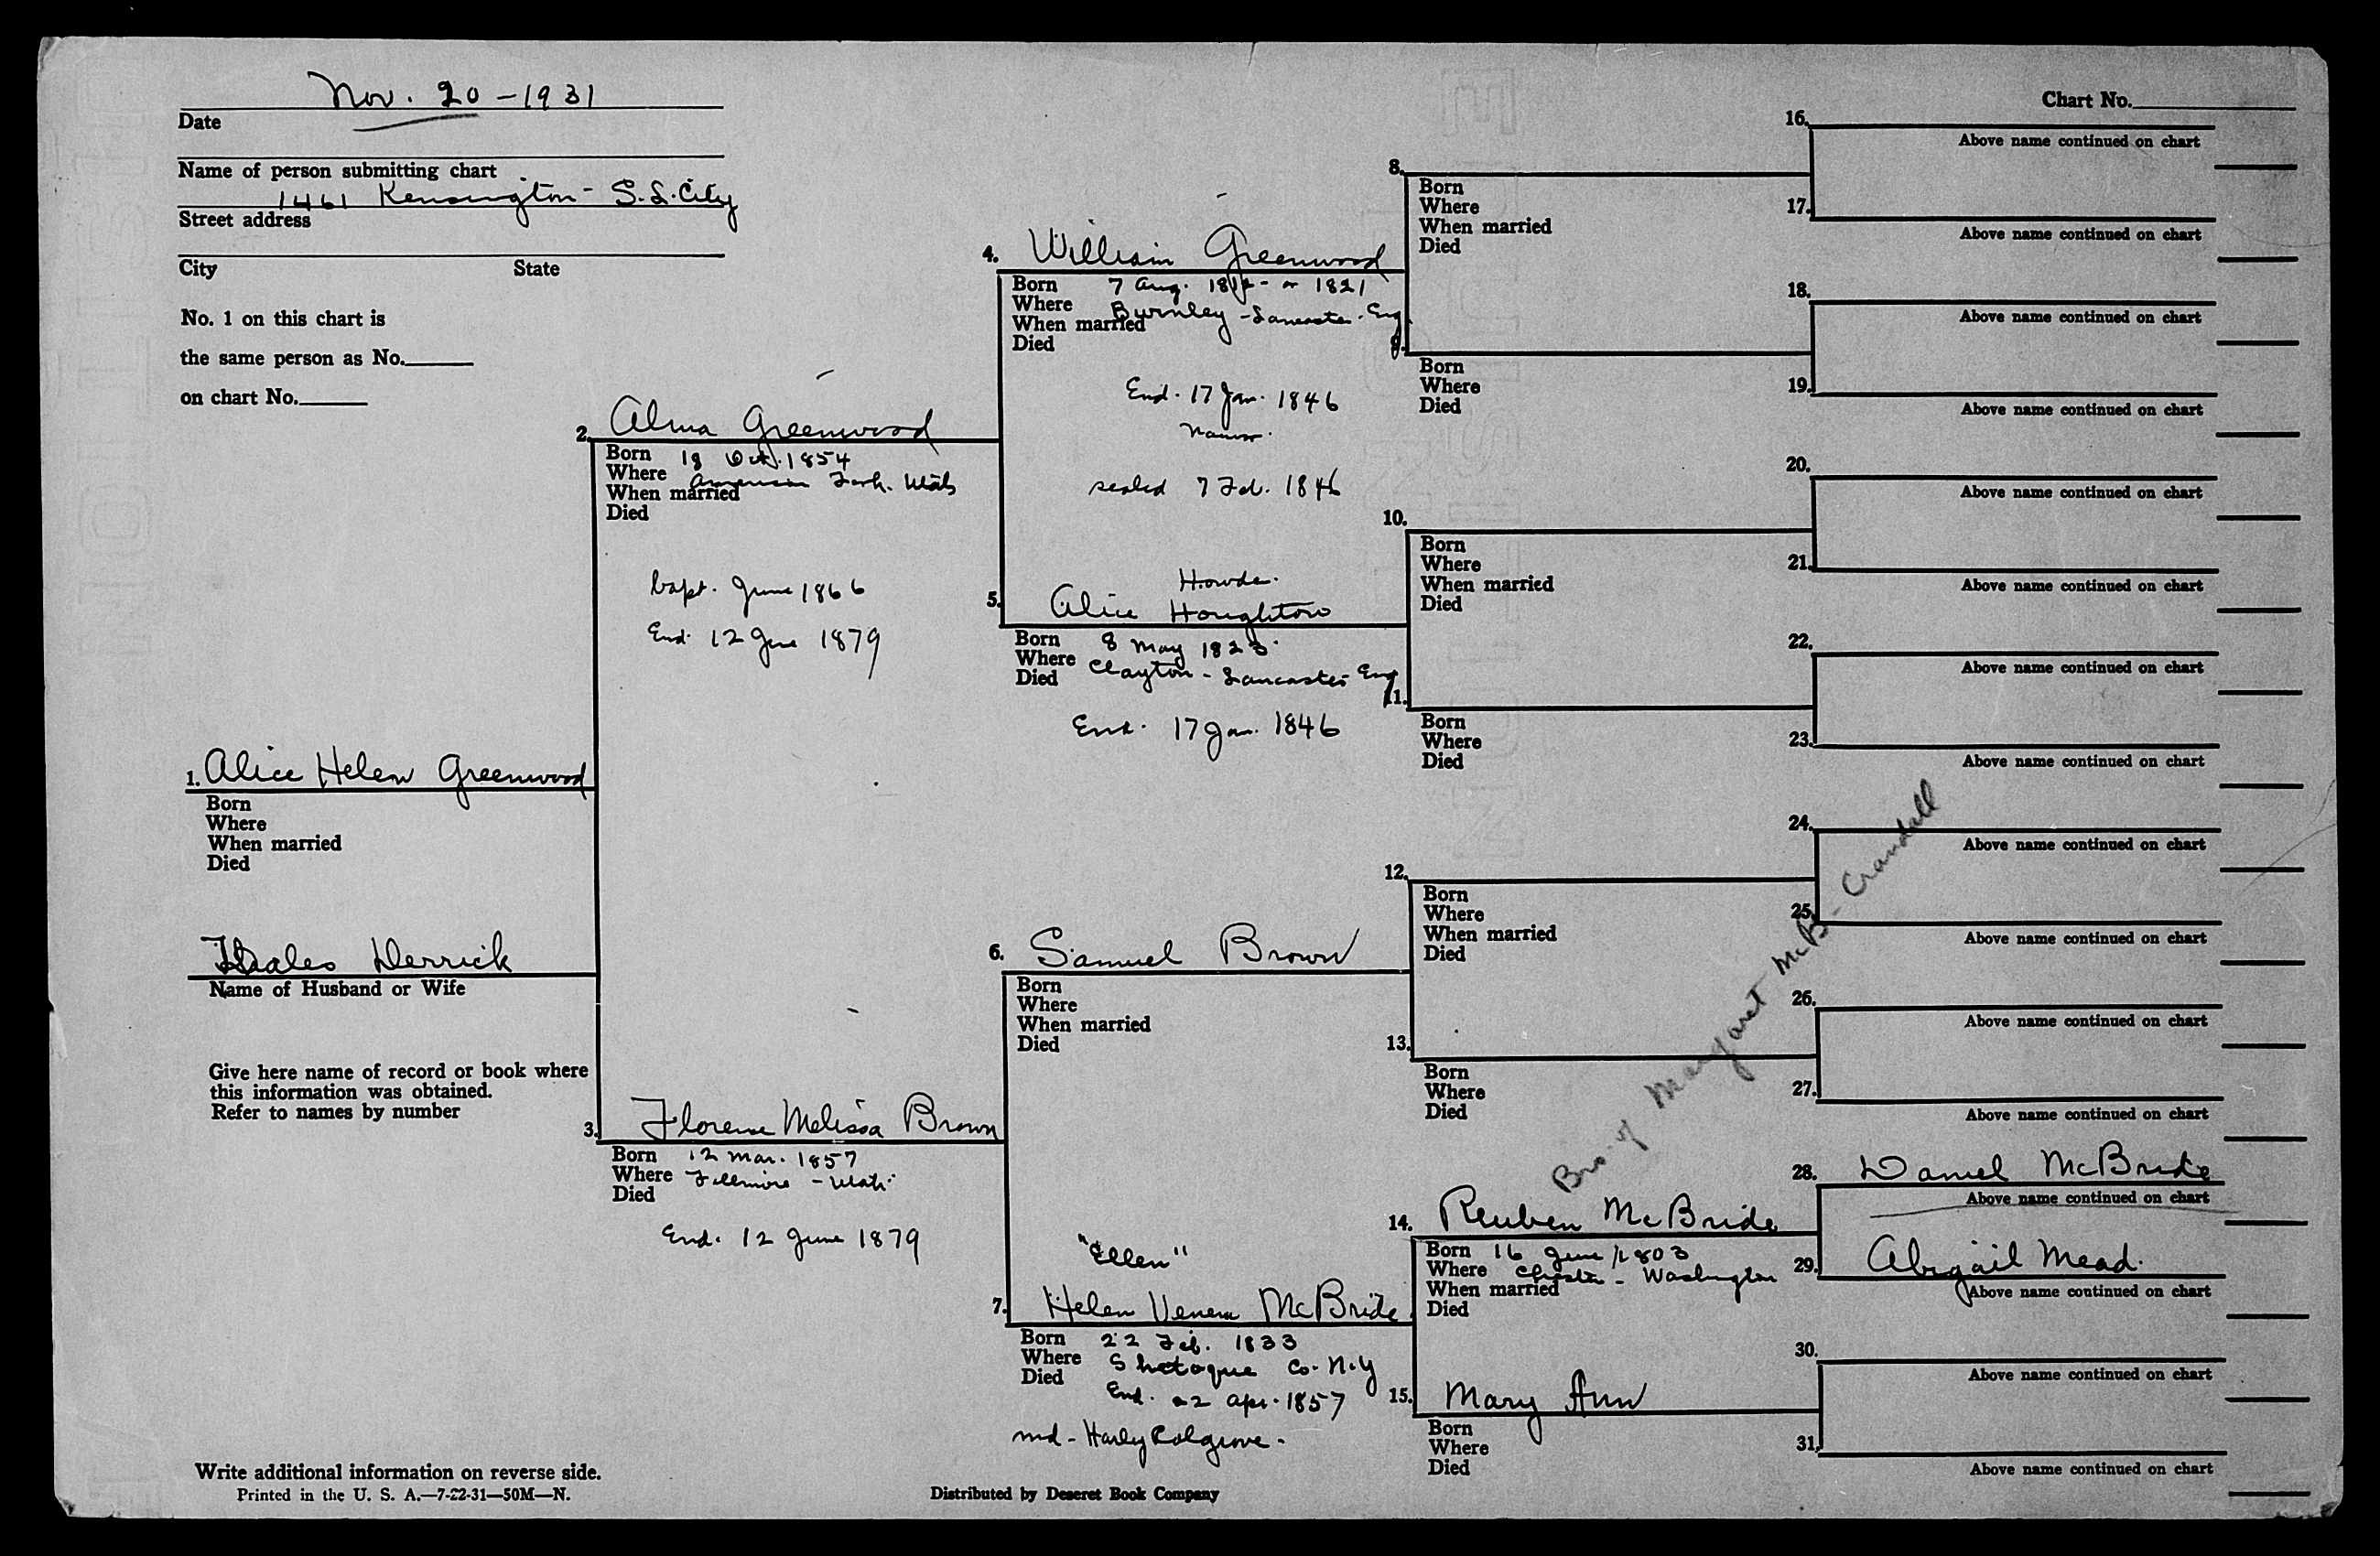 Nov. 20 - 1931
Date
Name of person submitting chart
1461 Kensington - S.L. City
Street address
City State
No. 1 on this chart is
the same person as No.
on chart No.
Chart No.
1. Alice Helen Greenwood
Born
Where
When married
Died
Derrick
Name of Husband or Wife
Give here name of record or book where
this information was obtained.
Refer to names by number
2. Alma Greenwood
Born 18 Oct. 1854
Where American Fork. Utah
When married
Died
bapt. June 1866
End. 12 June 1879
3. Florence Melissa Brown
Born 12 Mar. 1857
Where Fillmore - Utah.
Died
End. 12 June 1879
4. William Greenwood
Born 7 Aug. 1812 - or 1821
Where Burnley - Lancaster. Eng.
When married
Died
End. 17 Jan. 1846
Nauvoo.
sealed 7 Feb. 1846
Howde.
5. Alice Houghton
Born 8 May 1823.
Where Clayton - Lancaster Eng
Died
End. 17 Jan. 1846
6. Samuel Brown
Born
Where
When married
Died
"Ellen"
7. Helen McBride
Born 22 Feb. 1833
Where Shetoque Co. N.Y
Died
End. 22 Apr. 1857
md - Harley Colgrove.
8.
Born
Where
When married
Died
9.
Born
Where
Died
10.
Born
Where
When married
Died
11.
Born
Where
Died
12.
Born
Where
When married
Died
13.
Born
Where
Died
Bro. of Margaret McB - Crandall
14. Reuben McBride
Born 16 June 1803
Where Chester - Washington
When married
Died
15. Mary Ann
Born
Where
Died
16.
Above name continued on chart
17.
Above name continued on chart
18.
Above name continued on chart
19.
Above name continued on chart
20.
Above name continued on chart
21.
Above name continued on chart
22.
Above name continued on chart
23.
Above name continued on chart
24.
Above name continued on chart
25.
Above name continued on chart
26.
Above name continued on chart
27.
Above name continued on chart
28. Daniel McBride
Above name continued on chart
29. Abigail Mead.
Above name continued on chart
30.
Above name continued on chart
31.
Above name continued on chart
Write additional information on reverse side.
Printed in the U. S. A.—7-22-31—50M—N.
Distributed by Deseret Book Company